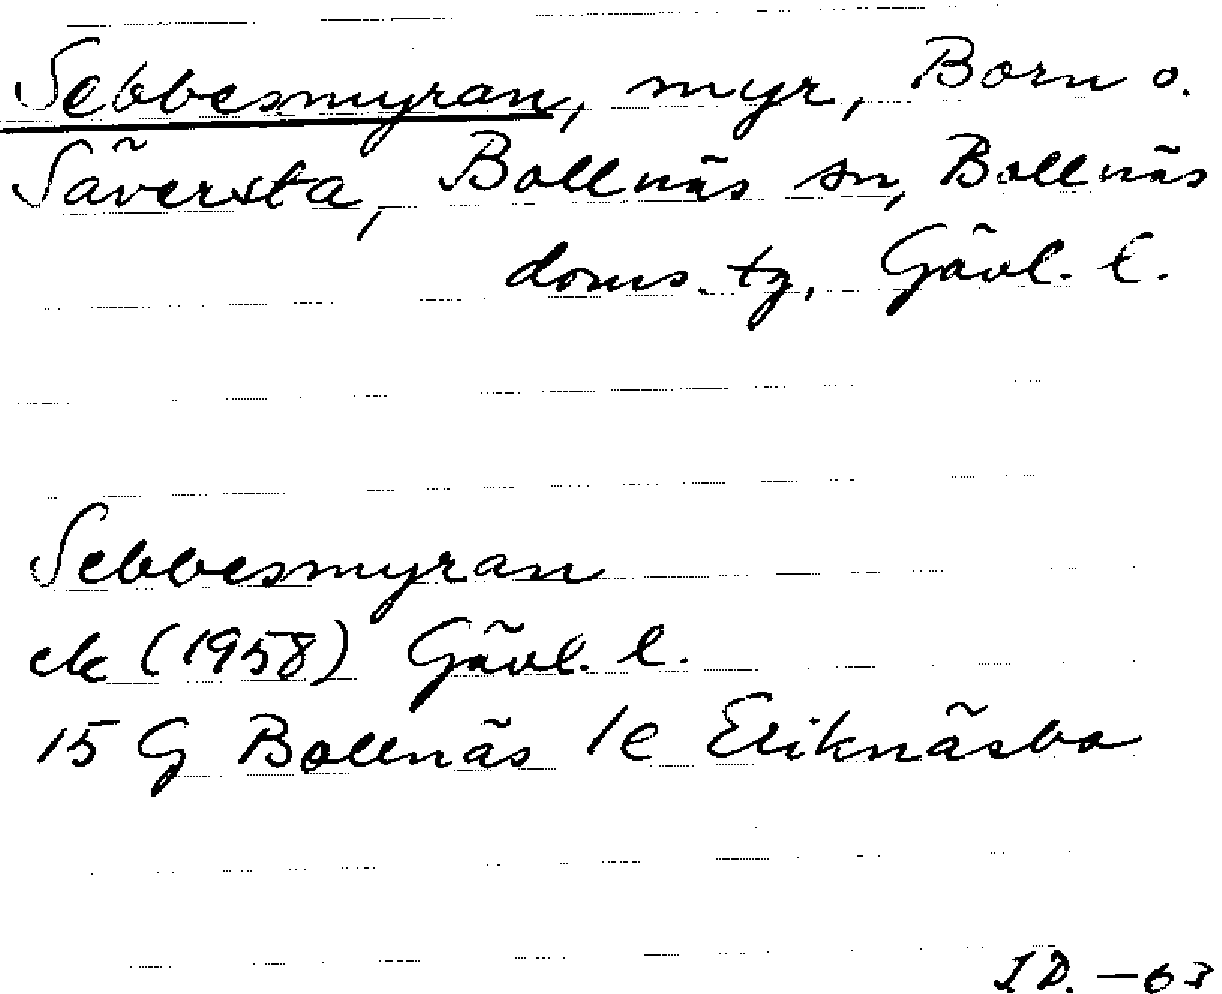 Sebbesmyran, myr, Born o.
Säversta, Bollnäs sn, Bollnäs
doms. tg, Gävl. l.
Sebbesmyran
ek (1958) Gävl. l.
15 G Bollnäs 1e Eriknäsbo
I D. -63